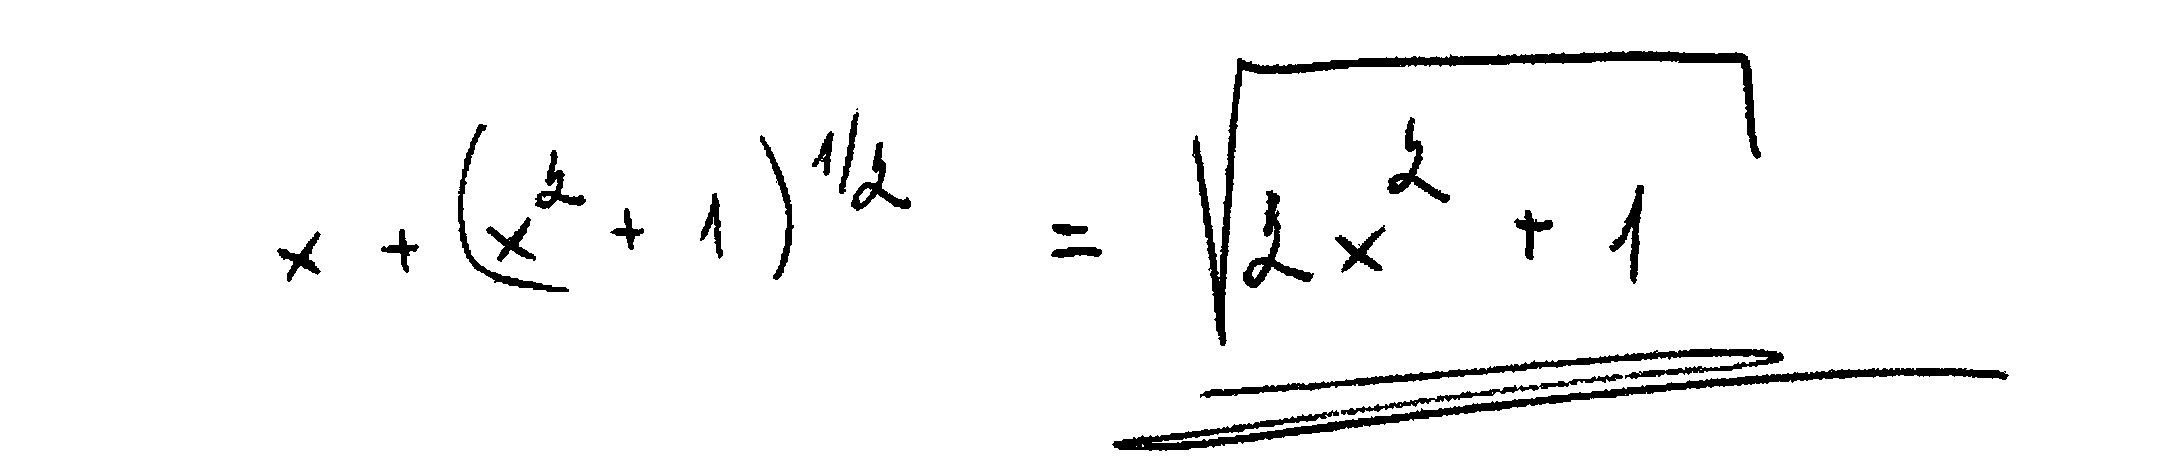 x + (x² + 1)^{1/2} = √(2x² + 1)